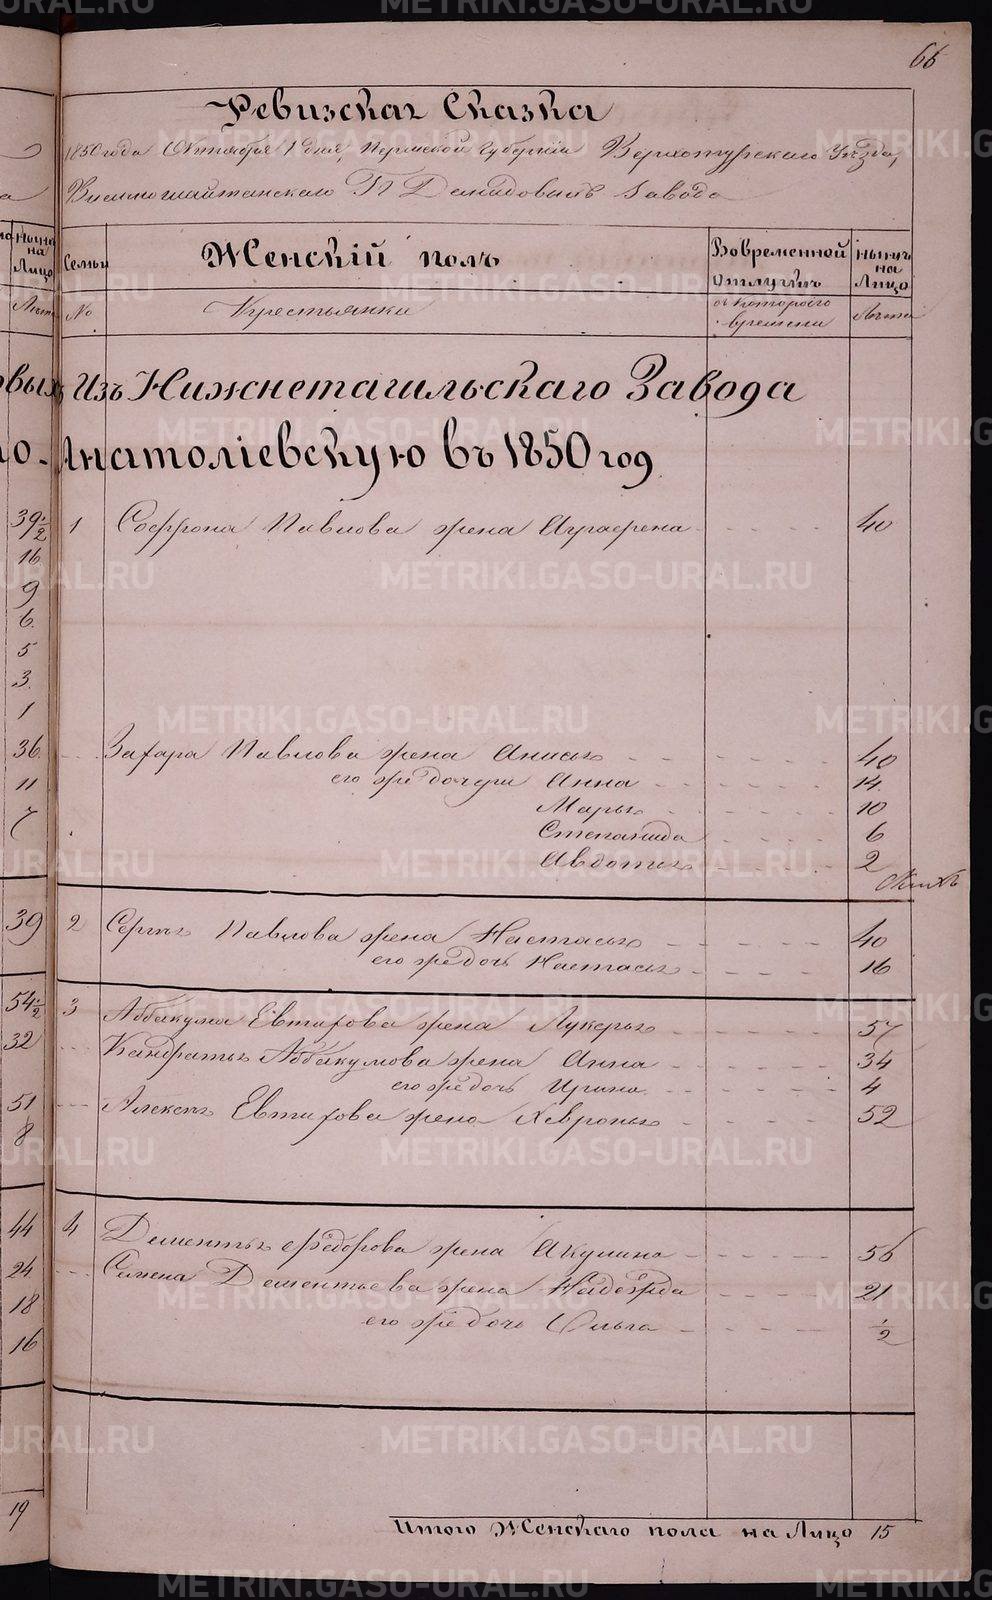 66
Ревизская Сказка
1850 года Октября 1 дня, Пермской Губернiи Верхотурскаго Уѣзда,
Висимошайтанскаго П Демидовыхъ Завода
Семьи
Женскiй полъ
Вовременной
Отлучкѣ
нынѣ
на
Лицо
№
Крестьянки
съ котораго
времени
Лѣта
Изъ Нижнетагильскаго Завода
Анатолiевскую въ 1850 год
1 Софрона Павлова жена Аграфена 40
Захара Павлова жена Анисья 40
его же дочери Анна 14
Марья 10
Степанида 6
Авдотья 2
2 Сергѣя Павлова жена Настасья 40
его же дочь Настасья 16
3 Аббакума Евтифова жена Лукерья 57
Кандратья Аббакумова жена Анна 34
его же дочь Ирина 4
Алексѣя Евтифова жена Хевронья 52
4 Дементья Ѳедорова жена Акулина 56
Семена Дементьева жена Надежда 21
его же дочь Ольга 1/2
Итого Женскаго пола на Лицо 15
нынѣ
на
Лицо
Лѣта
39 1/2
16
9
6
5
3
1
36
11
7
39
54 1/2
32
51
8
44
24
18
16
19
METRIKI.GASO-URAL.RU